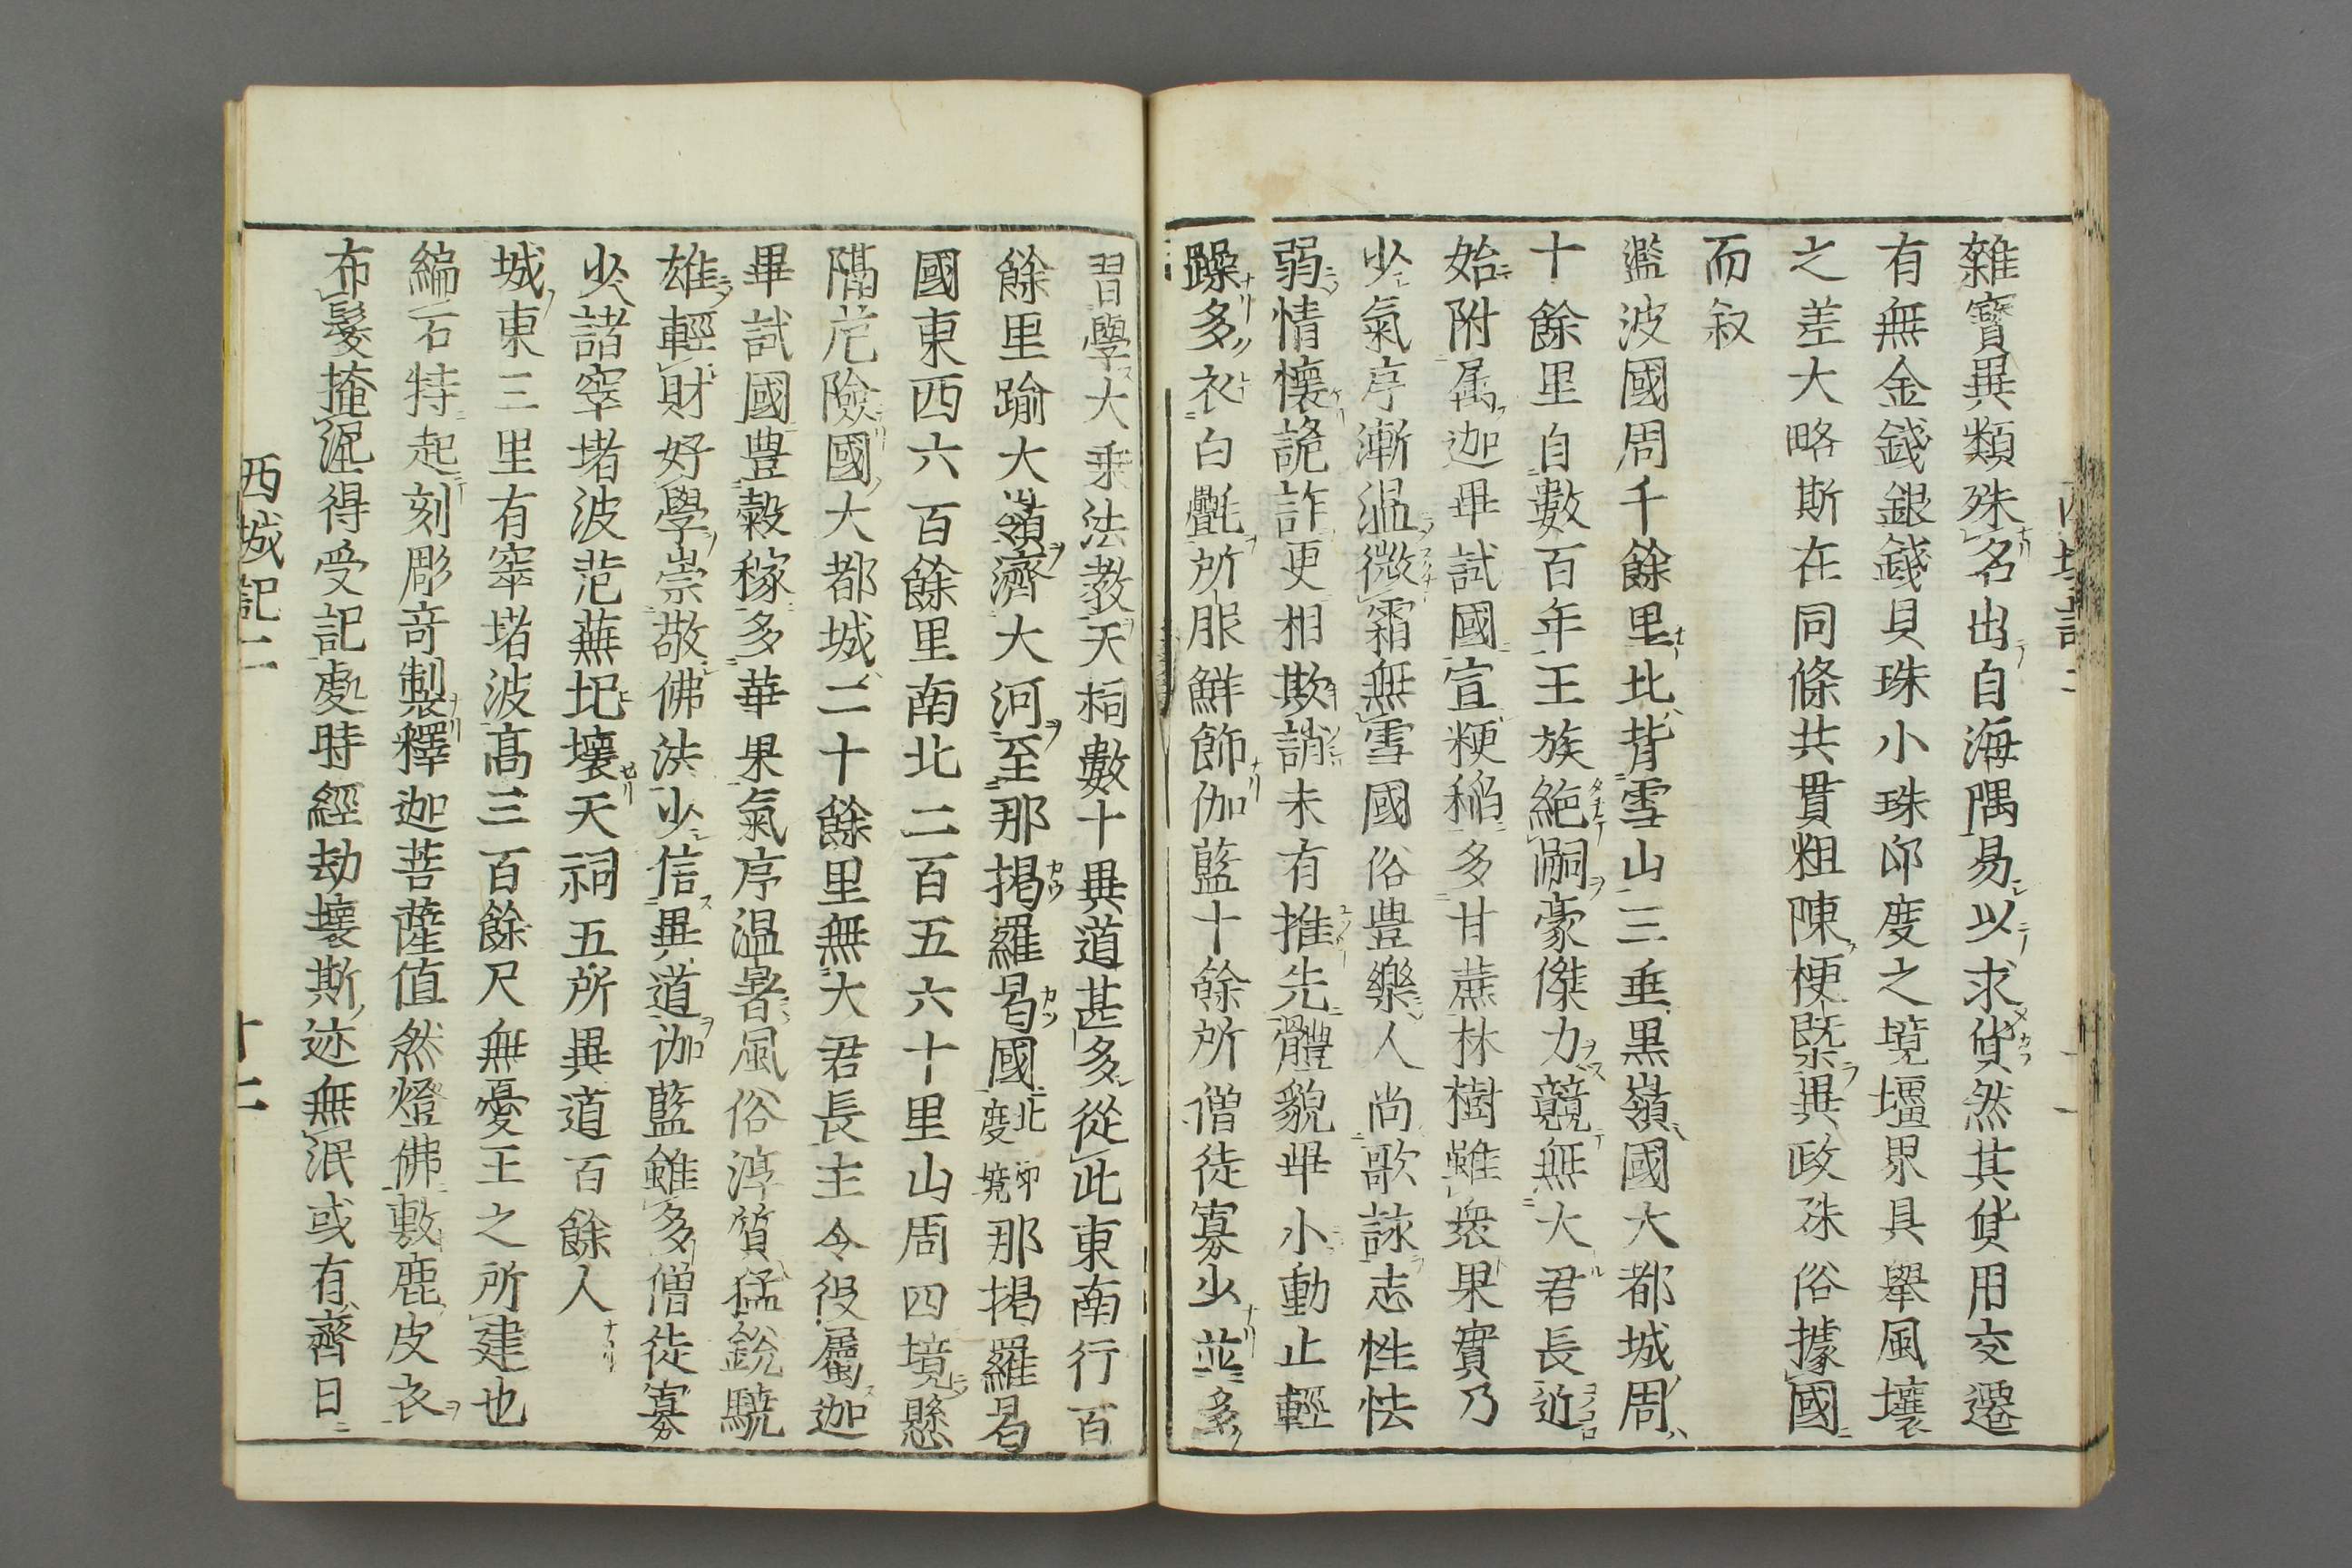 雜寶異類殊名出自海隅易以求貨然其貨用交遷
有無金錢銀錢貝珠小珠印度之境壃界具舉風壤
之差大略斯在同條共貫粗陳梗槩異政殊俗據國
而叙
濫波國周千餘里北背雪山三垂黒嶺國大都城周
十餘里自數百年王族絶嗣豪傑力競無大君長近
始附属迦畢試國宜粳稲多甘蔗林樹雖衆果實乃
少氣序漸温微霜無雪國俗豊樂人尚歌詠志性怯
弱情懐詭詐更相欺誚未有推先體貌卑小動止輕
躁多衣白氎所服鮮飾伽藍十餘所僧徒寡少並多
習學大乗法教天祠數十異道甚多從此東南行百
餘里踰大嶺濟大河至那掲羅曷國北印度境那掲羅曷
國東西六百餘里南北二百五六十里山周四境懸
隔危險國大都城二十餘里無大君長主令役屬迦
畢試國豊穀稼多華果氣序温暑風俗淳質猛鋭驍
雄輕財好學崇敬佛法少信異道伽藍雖多僧徒寡
少諸窣堵波荒蕪圮壞天祠五所異道百餘人
城東三里有窣堵波髙三百餘尺無憂王之所建也
編石特起刻彫奇製釋迦菩薩值然燈佛敷鹿皮衣
布髮掩泥得受記處時經劫壞斯迹無泯或有齋日
西域記二
十二